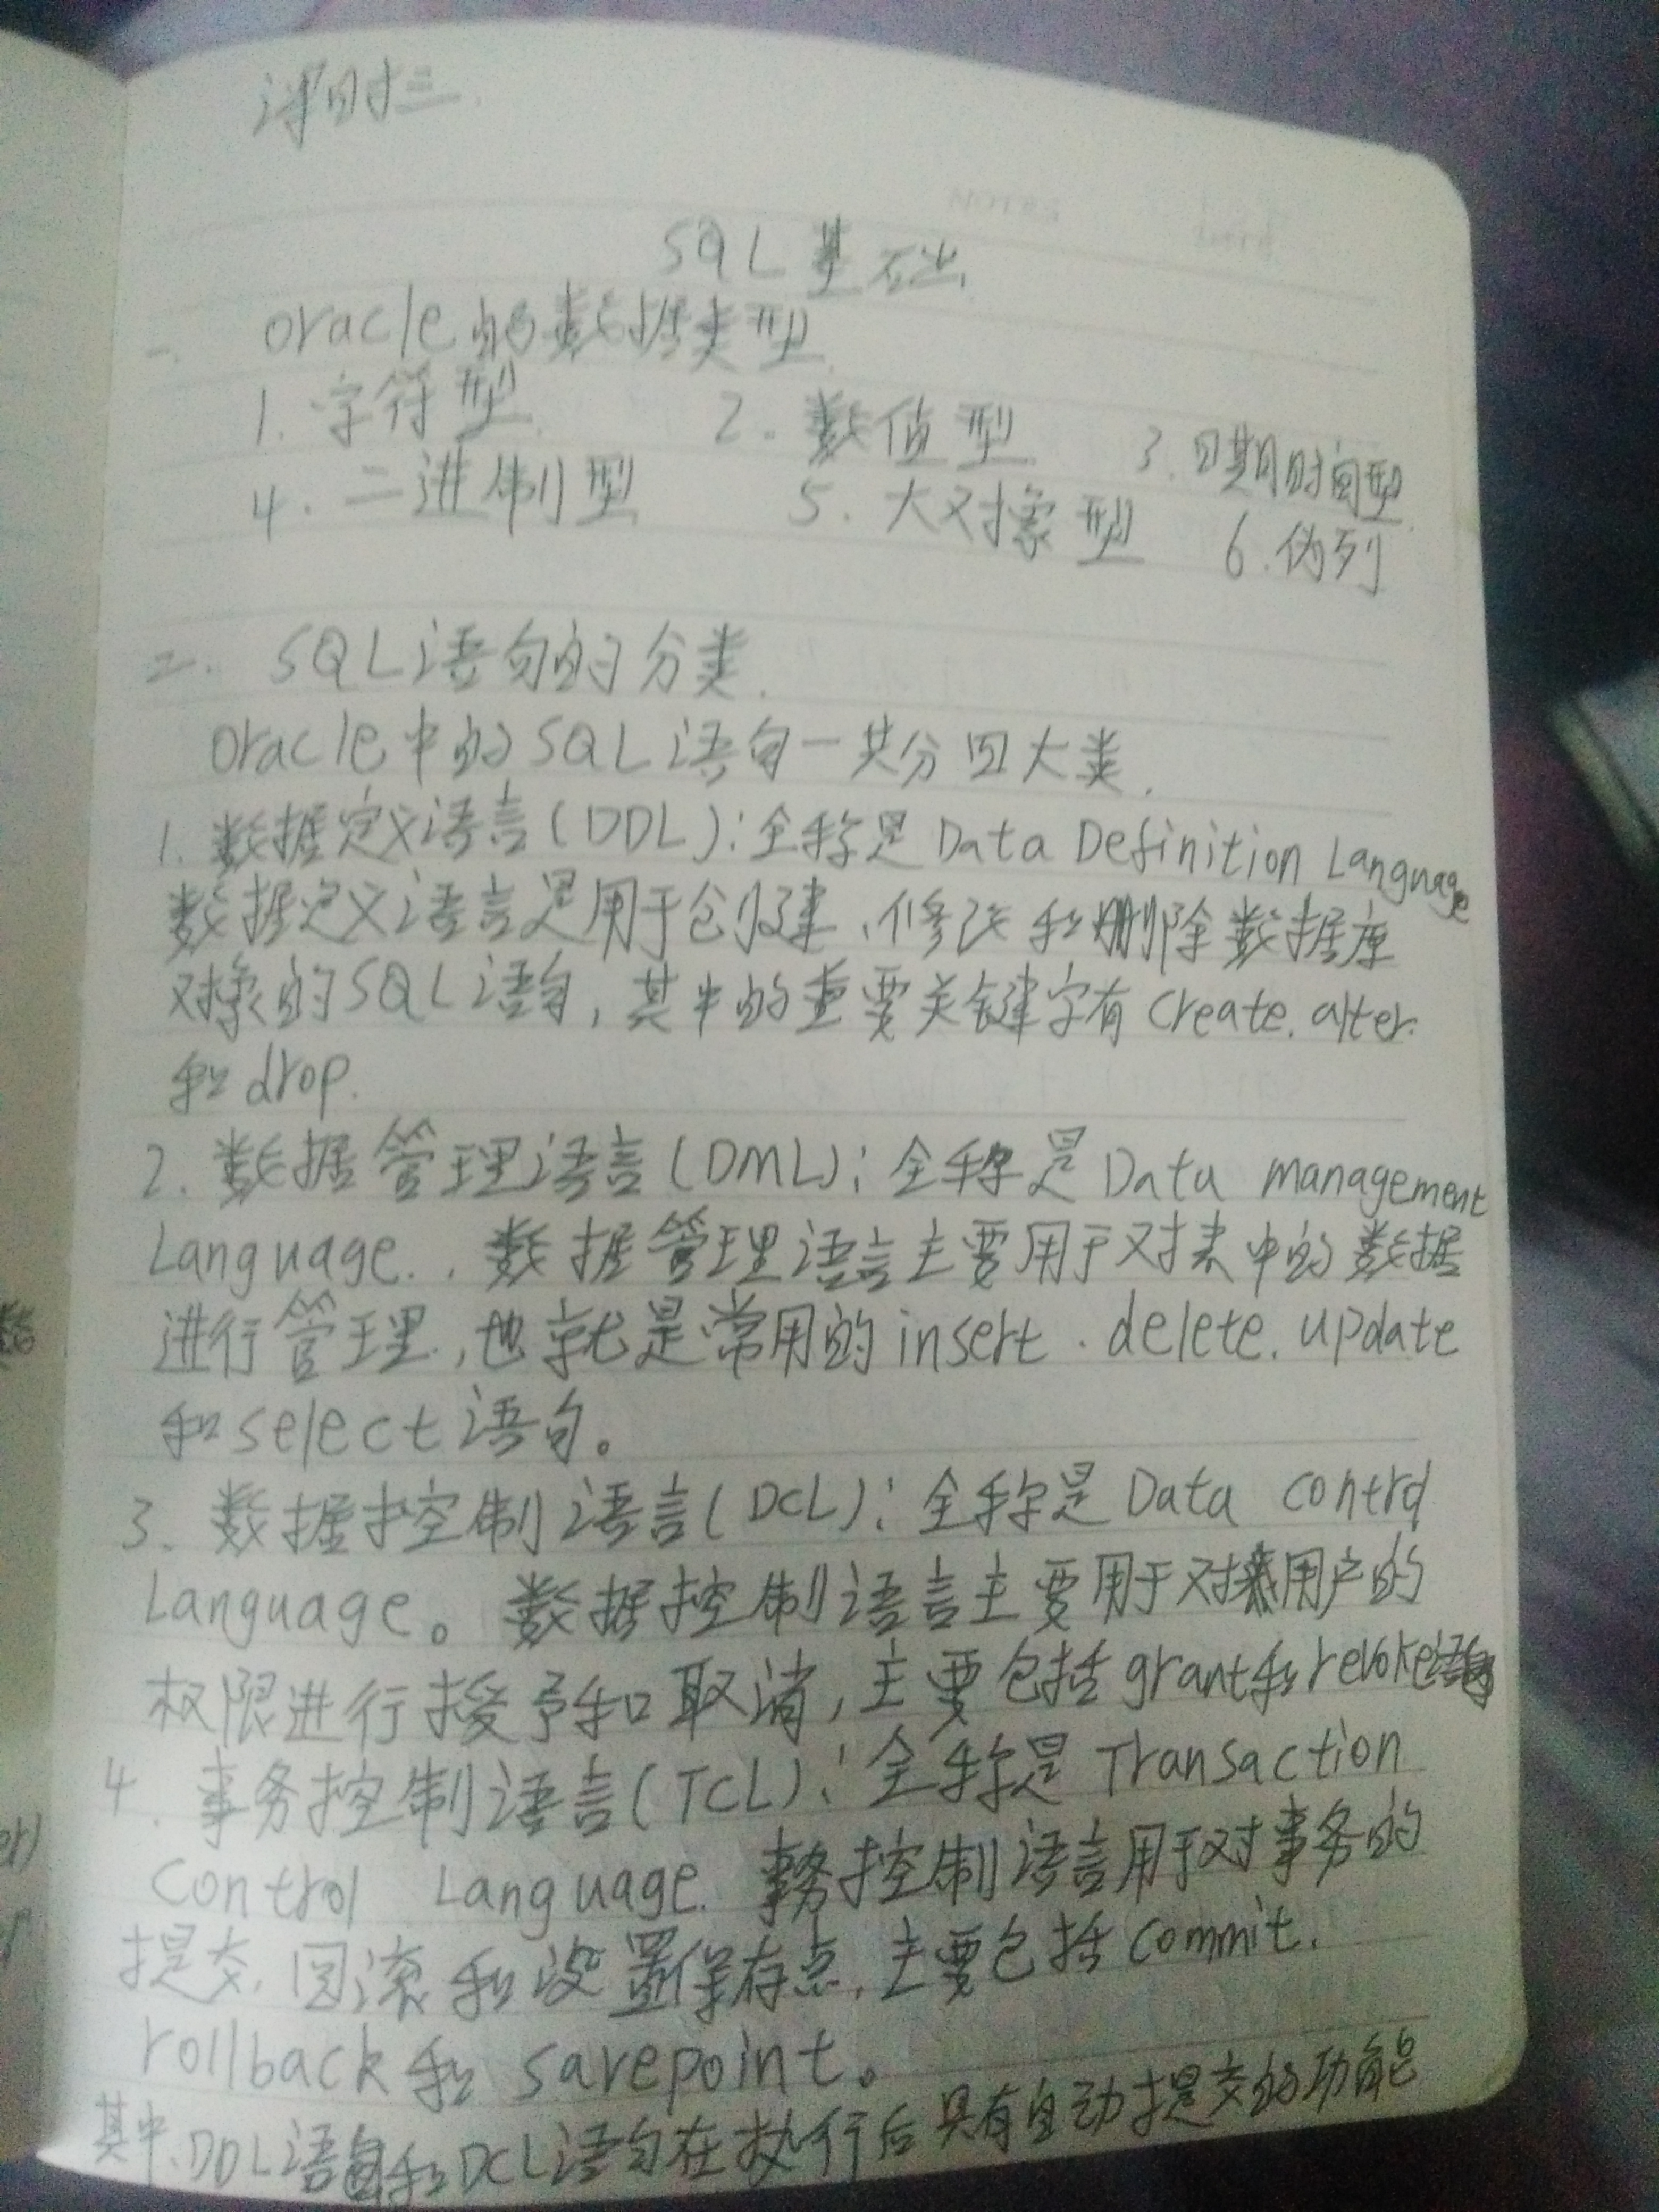 课时三
NOTES
SQL基础
一. oracle的数据类型
1. 字符型 2. 数值型 3. 日期时间型
4. 二进制型 5. 大对象型 6. 伪列
二. SQL语句的分类.
oracle中的SQL语句一共分四大类.
1. 数据定义语言(DDL):全称是Data Definition Language
数据定义语言是用于创建、修改和删除数据库
对象的SQL语句,其中的重要关键字有create.alter.
和drop.
2. 数据管理语言(DML):全称是Data management
Language.. 数据管理语言主要用于对表中的数据
进行管理.,也就是常用的insert.delete.update
和select语句。
3. 数据控制语言(DCL):全称是Data control
Language。数据控制语言主要用于对用户的
权限进行授予和取消,主要包括grant和revoke语句
4. 事务控制语言(TCL):全称是Transaction
control Language. 事务控制语言用于对事务的
提交,回滚和设置保存点,主要包括commit.
rollback和savepoint。
其中、DDL语句和DCL语句在执行后具有自动提交的功能